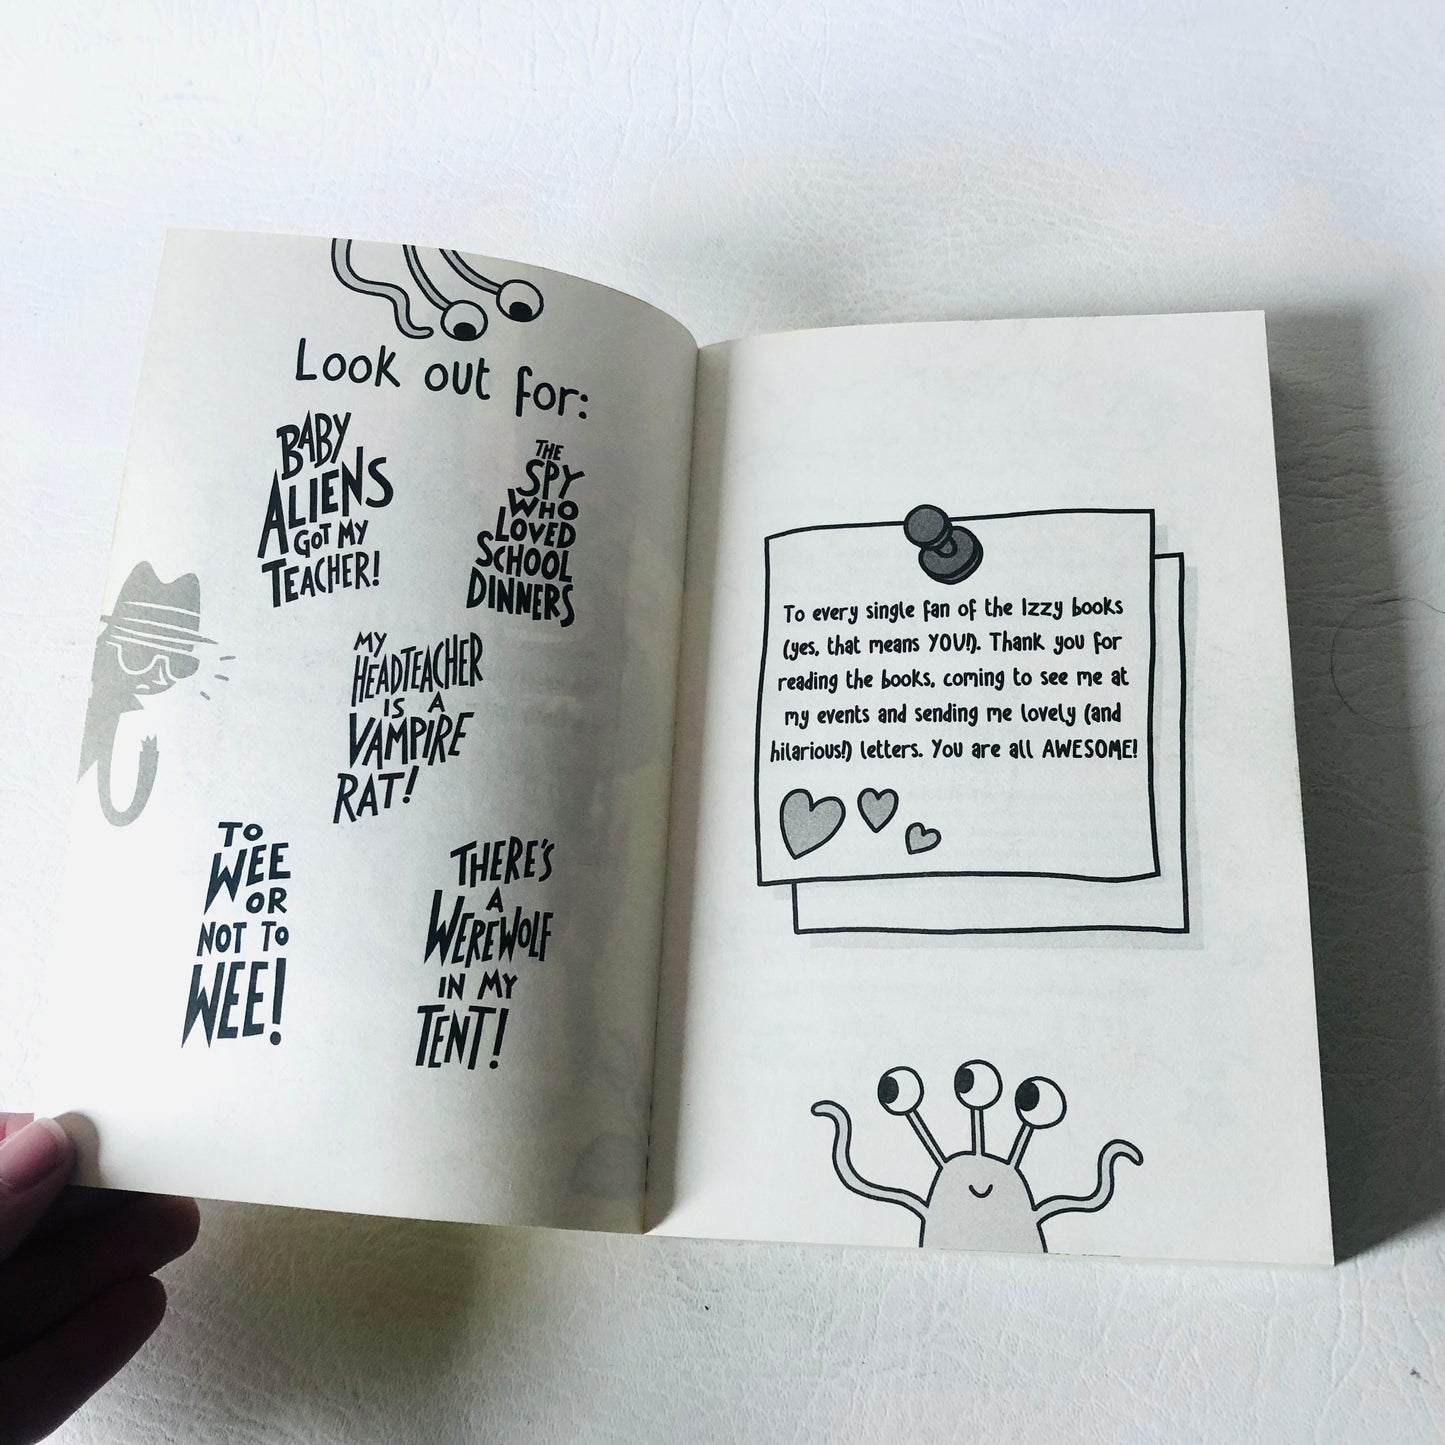 Look out for:
BABY
ALIENS
GOT MY
TEACHER!
THE
SPY
WHO
LOVED
SCHOOL
DINNERS
MY
HEADTEACHER
IS A
VAMPIRE
RAT!
TO
WEE
OR
NOT TO
WEE!
THERE'S
A
WEREWOLF
IN MY
TENT!
To every single fan of the Izzy books
(yes, that means YOU!). Thank you for
reading the books, coming to see me at
my events and sending me lovely (and
hilarious!) letters. You are all AWESOME!